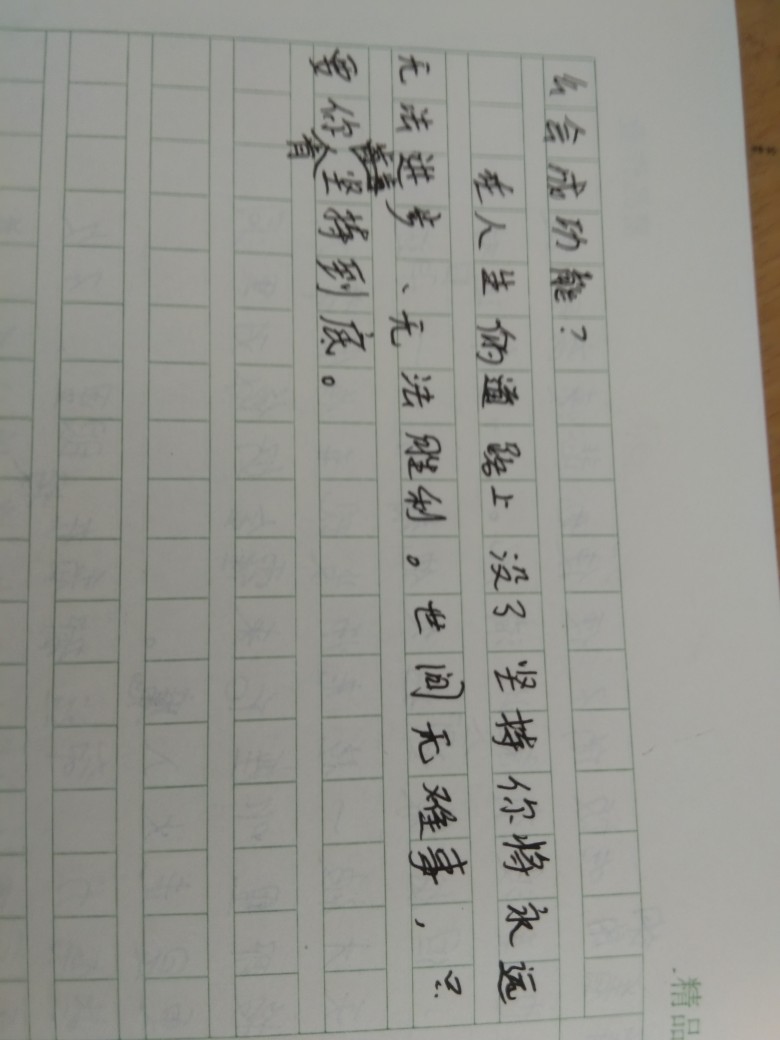 么会成功能？
在人生的道路上没了坚持你将永远
无法进步、无法胜利。世间无难事，只
要你肯坚持到底。
精品